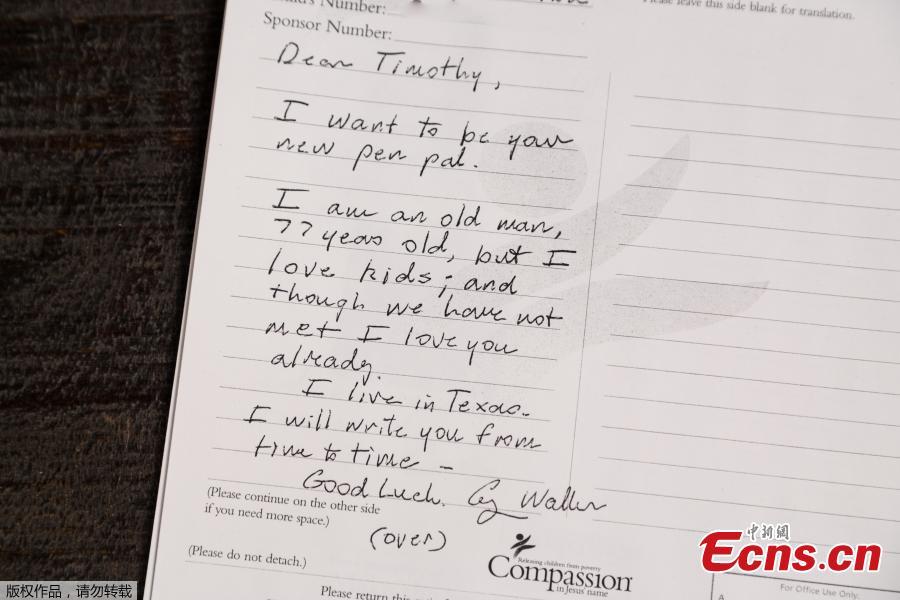 Number:
Please leave this side blank for translation.
Sponsor Number:
Dear Timothy,
I want to be your
new pen pal.
I am an old man,
77 years old, but I
love kids; and
though we have not
met I love you
already.
I live in Texas.
I will write you from
time to time -
Good Luck. G Walker
(Please continue on the other side
if you need more space.)
(over)
(Please do not detach.)
Releasing children from poverty
Compassion
in Jesus' name
Please return this
For Office Use Only.
A
中新網
Ecns.cn
版权作品,请勿转载